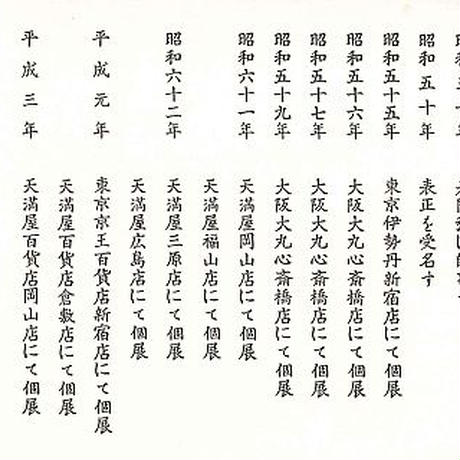 昭和五十年 表正を受名す
昭和五十五年 東京伊勢丹新宿店にて個展
昭和五十六年 大阪大丸心斎橋店にて個展
昭和五十七年 大阪大丸心斎橋店にて個展
昭和五十九年 大阪大丸心斎橋店にて個展
昭和六十一年 天満屋岡山店にて個展
天満屋福山店にて個展
昭和六十二年 天満屋三原店にて個展
天満屋広島店にて個展
平成元年 東京京王百貨店新宿店にて個展
天満屋百貨店倉敷店にて個展
平成三年 天満屋百貨店岡山店にて個展